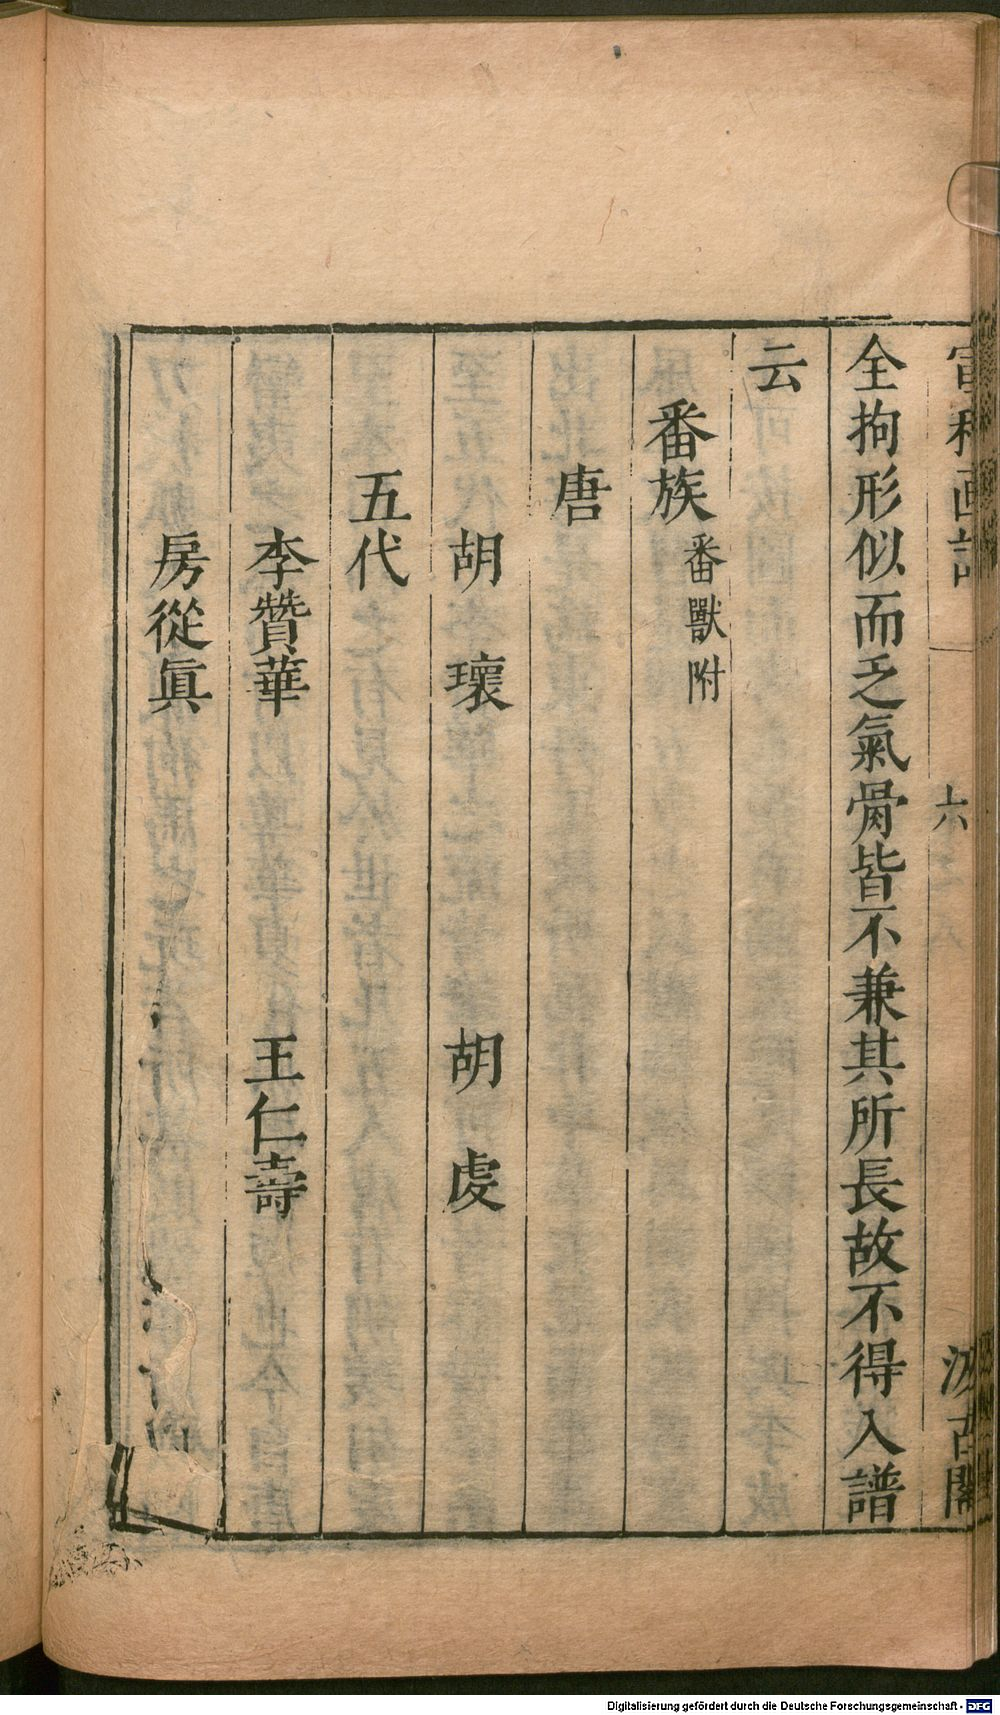 宣和画譜
六
汲古閣
全拘形似而乏氣骨皆不兼其所長故不得入譜
云
番族 番獸附
唐
胡瓌 胡虔
五代
李贊華 王仁壽
房從眞
Digitalisierung gefördert durch die Deutsche Forschungsgemeinschaft - DFG